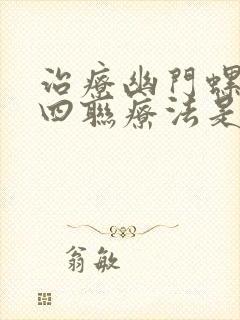 治療幽門螺
四聯療法是
翁敏